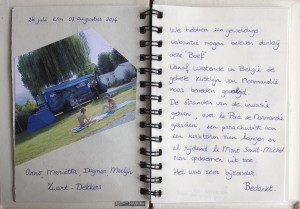 26 juli t/m 17 augustus 2014
Arno, Mariëtta, Dagmar Merlijn
Zwart - Dekkers
We hebben een geweldige
vakantie mogen beleven dankzij
deze "Boef"
Vanaf Westende in België de
gehele kustlijn van Normandië
naar beneden
De stranden van de invasie
gezien, over le Pont de Normandie
gereden, een parachutist aan
een kerktoren zien hangen en
als rijdend le Mont Saint Michel
zien opdoemen uit zee
Het was zeer bijzonder
Bedankt.